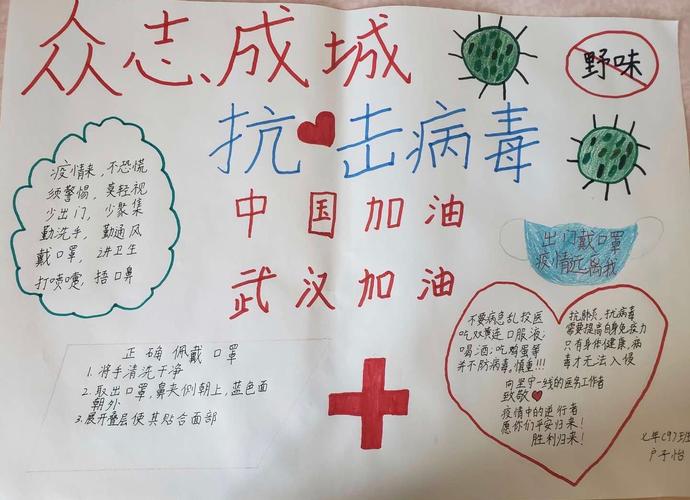 众志成城
野味
抗击病毒
中国加油
武汉加油
疫情来，不恐慌
须警惕，莫轻视
少出门，少聚集
勤洗手，勤通风
戴口罩，讲卫生
打喷嚏，捂口鼻
出门戴口罩
疫情远离我
正确佩戴口罩
1.将手清洗干净
2.取出口罩，鼻夹侧朝上，蓝色面
朝外
3.展开叠层使其贴合面部
不要病急乱投医
吃双黄连口服液，
喝酒；吃鸡蛋等
并不防病毒，慎重!!!
抗肺炎，抗病毒
需要提高自身免疫力
只有身体健康，病
毒才无法入侵
向坚守一线的医务工作者
致敬
疫情中的逆行者
愿你们平安归来！
胜利归来！
七年(9)班
户子怡